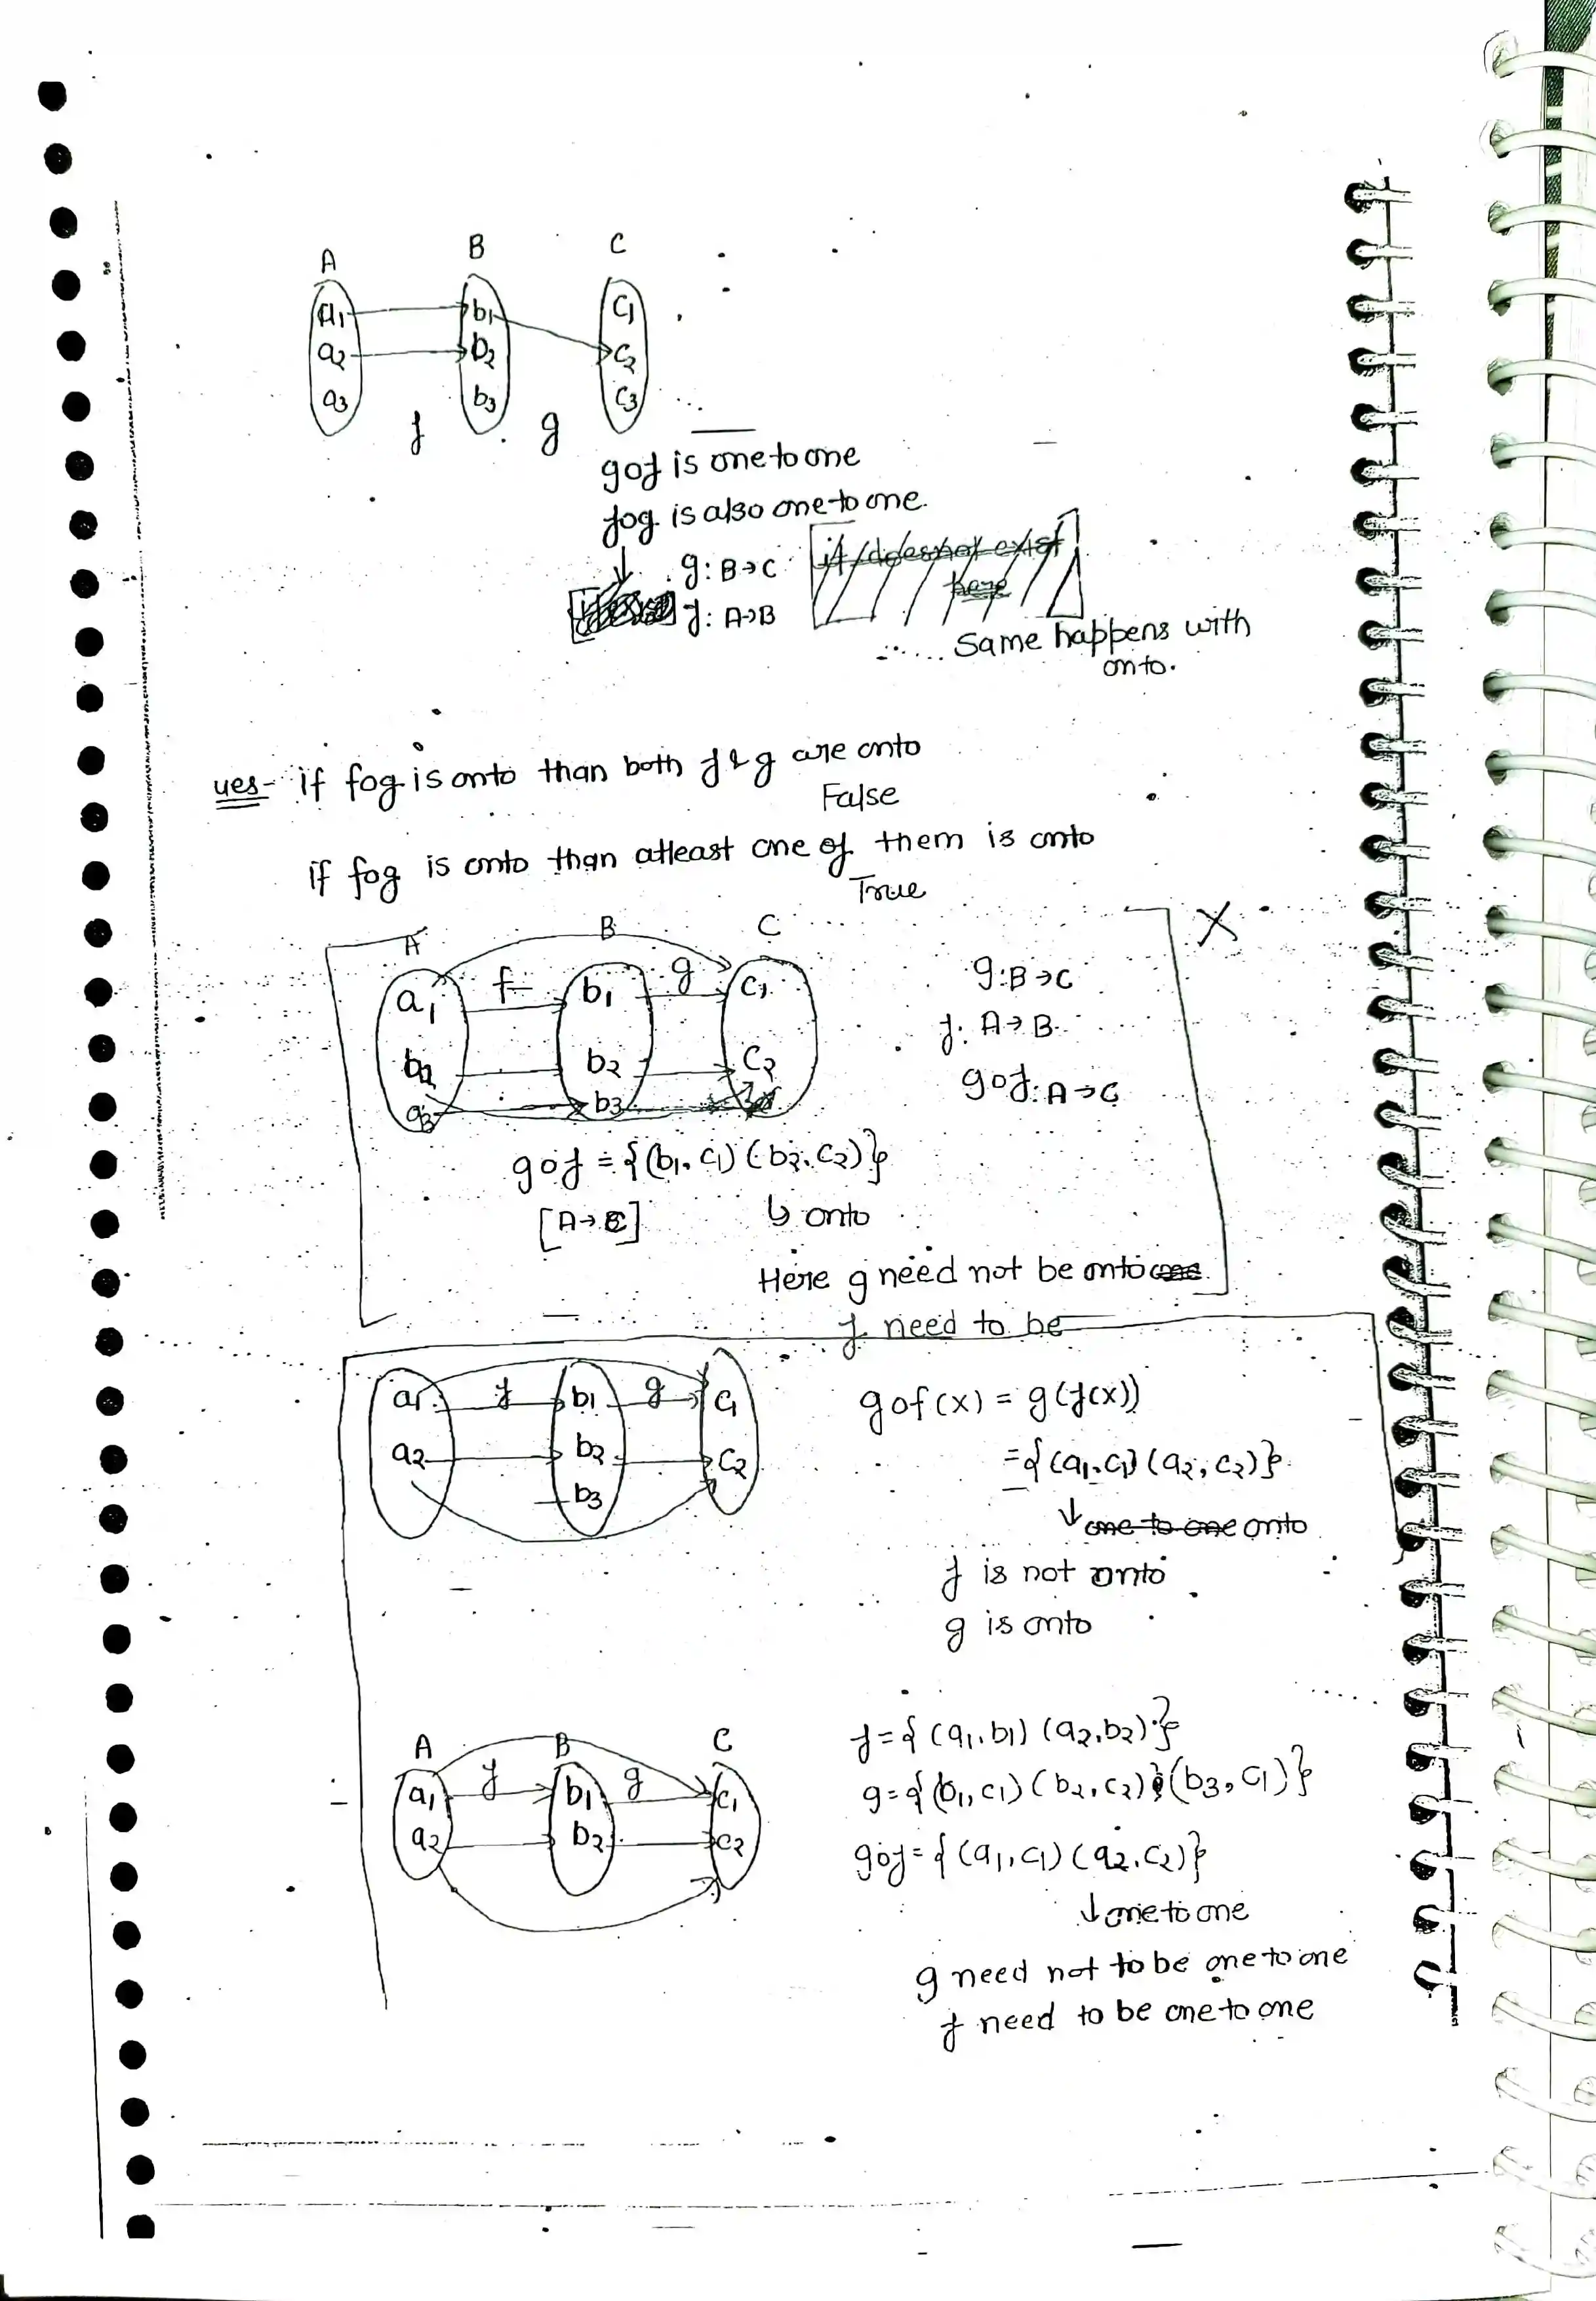 A B C
a1 b1 c1
a2 b2 c2
a3 b3 c3
f g
gof is one to one
fog is also one to one.
g: B→C it does not exist
here
f: A→B
Same happens with
onto.
yes- if fog is onto than both f & g are onto
False
if fog is onto than atleast one of them is onto
True
A B C X
a1 f b1 g c1
g: B→C
f: A→B
b2 c2
gof: A→C
a3 b3
gof = {(b1, c1) (b2, c2)}
[A→C] ↳ onto
Here g need not be onto
f need to be
a1 f b1 g c1
gof(x) = g(f(x))
a2 b2 c2
= {(a1, c1) (a2, c2)}
b3
↓ one to one onto
f is not onto
g is onto
A B C
f = {(a1, b1) (a2, b2)}
a1 f b1 g c1
g = {(b1, c1) (b2, c2) (b3, c1)}
a2 b2 c2
gof = {(a1, c1) (a2, c2)}
↓ one to one
g need not to be one to one
f need to be one to one